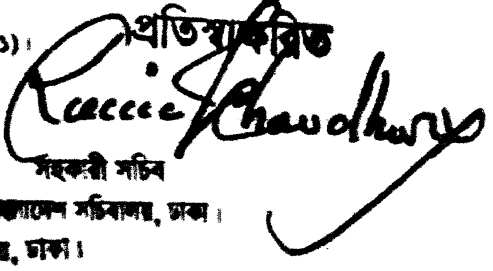 প্রতিস্বাক্ষরিত
১)।
Chaudhury
সহকারী সচিব
বাংলাদেশ সচিবালয়, ঢাকা।
ঢাকা।